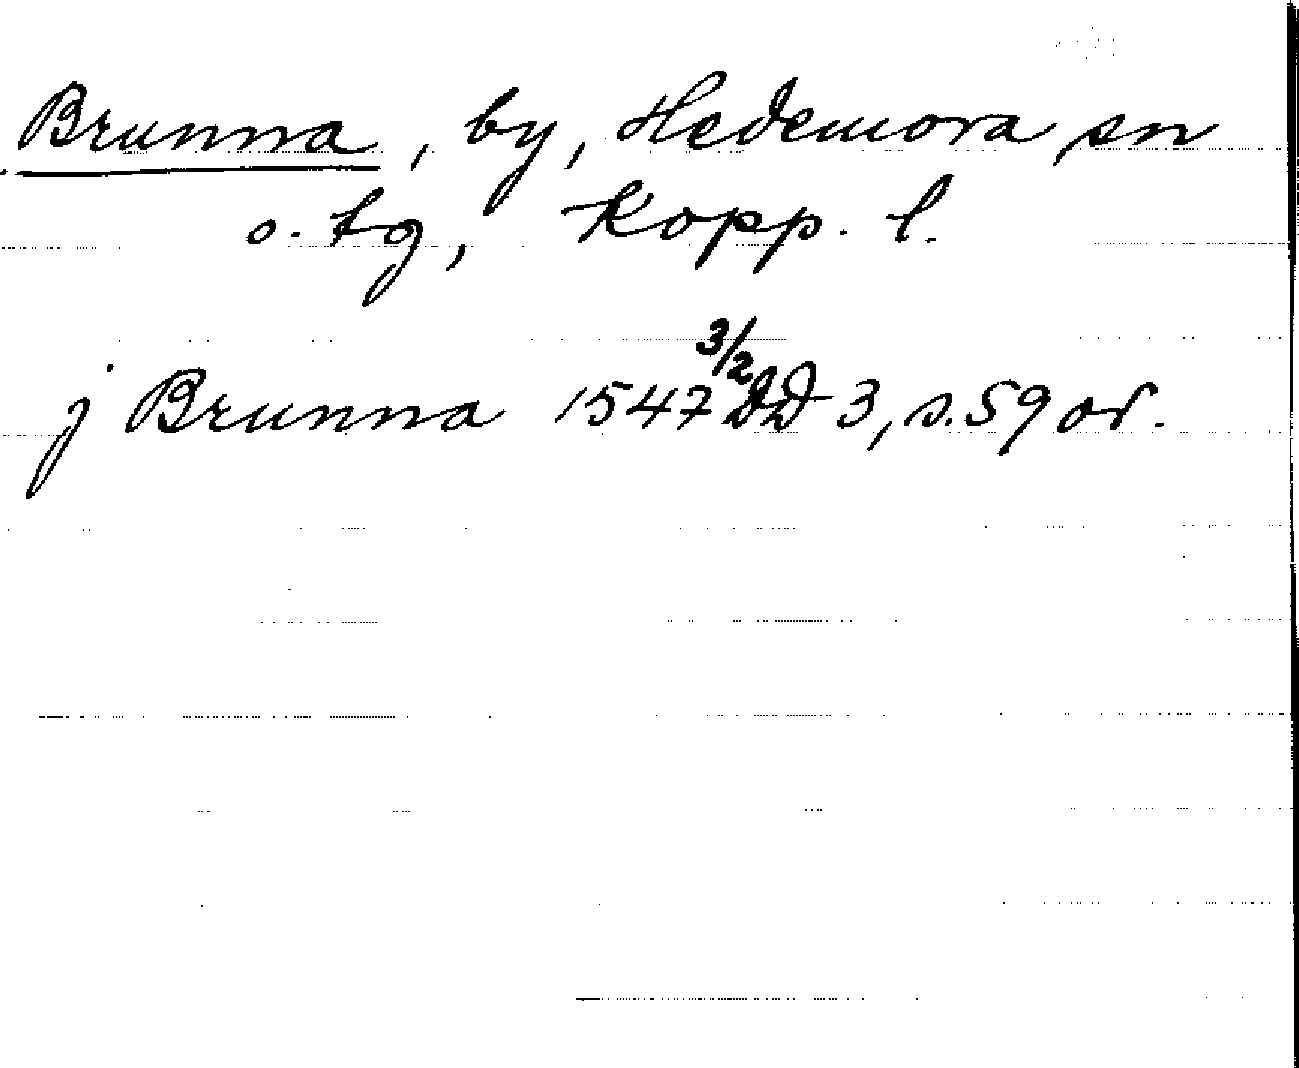 Brunna, by, Hedemora sn
o. tg, Kopp. l.
j Brunna 1547 3/2 DD 3, s. 59 or.